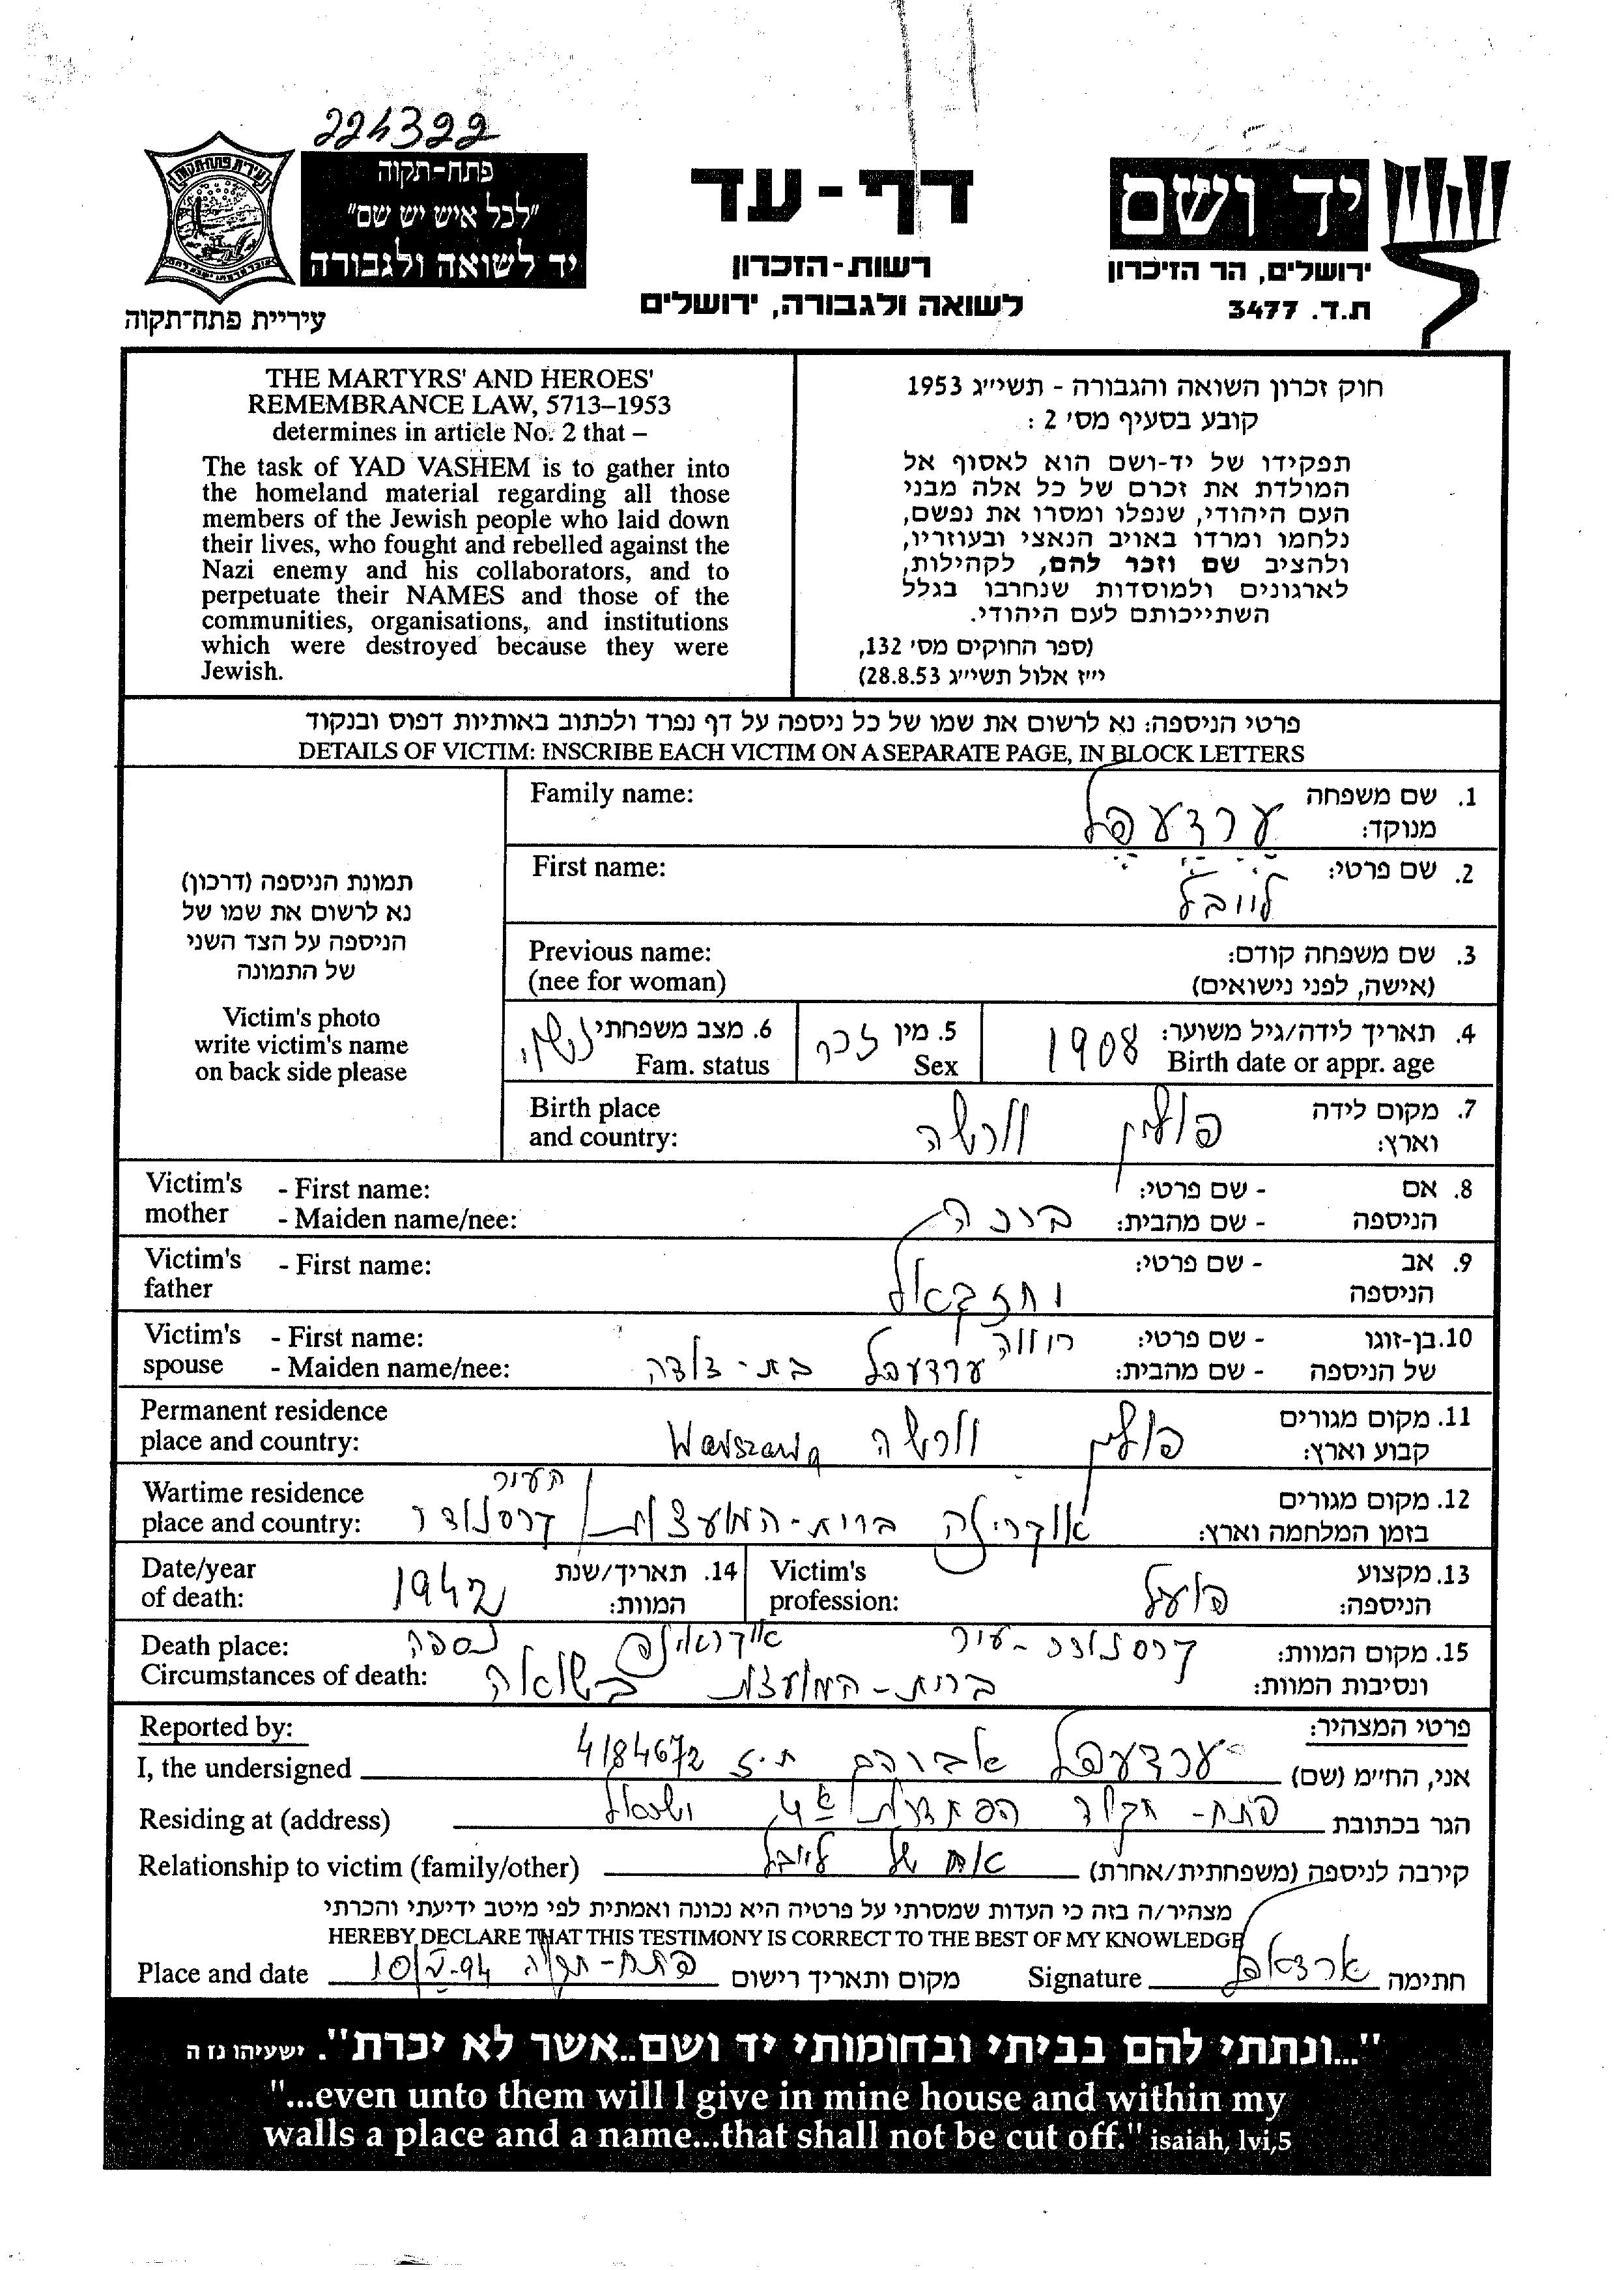 224322
פתח-תקוה
"לכל איש יש שם"
יד לשואה ולגבורה
עיריית פתח-תקוה
דף-עד
רשות-הזכרון
לשואה ולגבורה, ירושלים
יד ושם
ירושלים, הר הזיכרון
ת.ד. 3477
THE MARTYRS' AND HEROES'
REMEMBRANCE LAW, 5713–1953
determines in article No. 2 that –
The task of YAD VASHEM is to gather into
the homeland material regarding all those
members of the Jewish people who laid down
their lives, who fought and rebelled against the
Nazi enemy and his collaborators, and to
perpetuate their NAMES and those of the
communities, organisations, and institutions
which were destroyed because they were
Jewish.
חוק זכרון השואה והגבורה - תשי״ג 1953
קובע בסעיף מס׳ 2 :
תפקידו של יד-ושם הוא לאסוף אל
המולדת את זכרם של כל אלה מבני
העם היהודי, שנפלו ומסרו את נפשם,
נלחמו ומרדו באויב הנאצי ובעוזריו,
ולהציב שם וזכר להם, לקהילות,
לארגונים ולמוסדות שנחרבו בגלל
השתייכותם לעם היהודי.
(ספר החוקים מס׳ 132,
י״ז אלול תשי״ג 28.8.53)
פרטי הניספה: נא לרשום את שמו של כל ניספה על דף נפרד ולכתוב באותיות דפוס ובנקוד
DETAILS OF VICTIM: INSCRIBE EACH VICTIM ON A SEPARATE PAGE, IN BLOCK LETTERS
תמונת הניספה (דרכון)
נא לרשום את שמו של
הניספה על הצד השני
של התמונה
Victim's photo
write victim's name
on back side please
1. שם משפחה ערדעפל Family name:
מנוקד:
2. שם פרטי: לייבל First name:
3. שם משפחה קודם: Previous name:
(אישה, לפני נישואים) (nee for woman)
4. תאריך לידה/גיל משוער: 1908 5. מין זכר 6. מצב משפחתי נשוי
Birth date or appr. age Sex Fam. status
7. מקום לידה פולין וורשה Birth place
וארץ: and country:
8. אם - שם פרטי: Victim's - First name:
הניספה - שם מהבית: ברכה mother - Maiden name/nee:
9. אב - שם פרטי: Victim's - First name:
הניספה יחזקאל father
10. בן-זוגו - שם פרטי: רווה Victim's - First name:
של הניספה - שם מהבית: ערדעפל בת-דודה spouse - Maiden name/nee:
11. מקום מגורים Permanent residence
קבוע וארץ: פולין וורשה Warszawa place and country:
העיר
12. מקום מגורים Wartime residence
בזמן המלחמה וארץ: ברית-המועצות place and country:
13. מקצוע Victim's 14. תאריך/שנת Date/year
הניספה: פועל profession: המוות: 1942 of death:
15. מקום המוות: עיר נספה Death place:
ונסיבות המוות: ברית-המועצות בשואה Circumstances of death:
פרטי המצהיר: Reported by:
אני, החיימ (שם) ערדעפל אברהם ת.ז 4184672 I, the undersigned
הגר בכתובת פתח-תקוה Residing at (address)
קירבה לניספה (משפחתית/אחרת) אח של לייבל Relationship to victim (family/other)
מצהיר/ה בזה כי העדות שמסרתי על פרטיה היא נכונה ואמתית לפי מיטב ידיעתי והכרתי
HEREBY DECLARE THAT THIS TESTIMONY IS CORRECT TO THE BEST OF MY KNOWLEDGE
חתימה Signature מקום ותאריך רישום פתח-תקוה 10/V-94 Place and date
"...ונתתי להם בביתי ובחומותי יד ושם..אשר לא יכרת". ישעיהו נז ה
"...even unto them will I give in mine house and within my
walls a place and a name...that shall not be cut off." isaiah, lvi,5